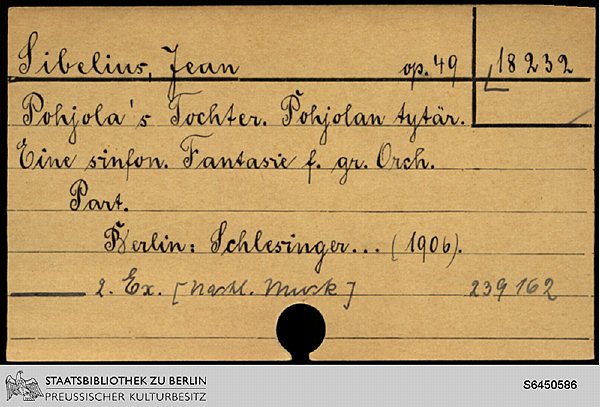 Sibelius, Jean op. 49 18232
Pohjola's Tochter. Pohjolan tytär.
Eine sinfon. Fantasie f. gr. Orch.
Part.
Berlin: Schlesinger... (1906).
2. Ex. [Nachl. Muck] 239162
STAATSBIBLIOTHEK ZU BERLIN
PREUSSISCHER KULTURBESITZ
S6450586